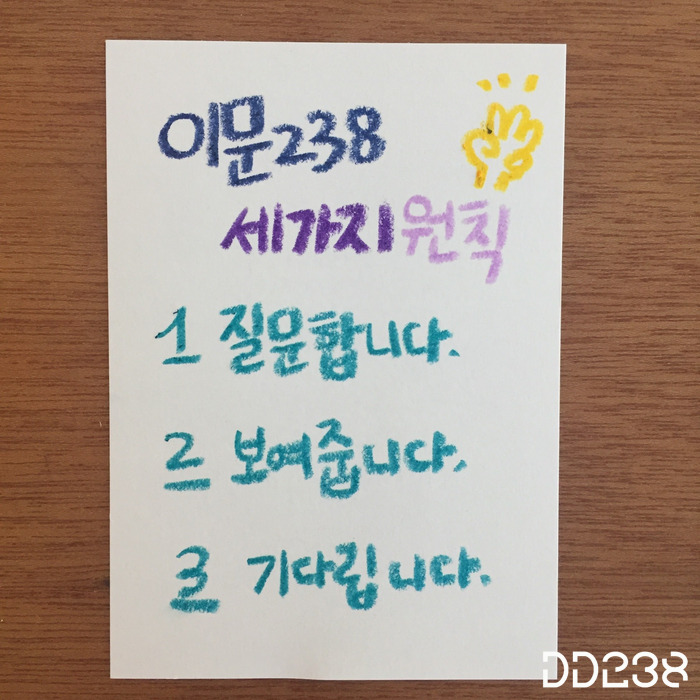 이문238
세가지 원칙
1 질문합니다.
2 보여줍니다.
3 기다립니다.
DD238